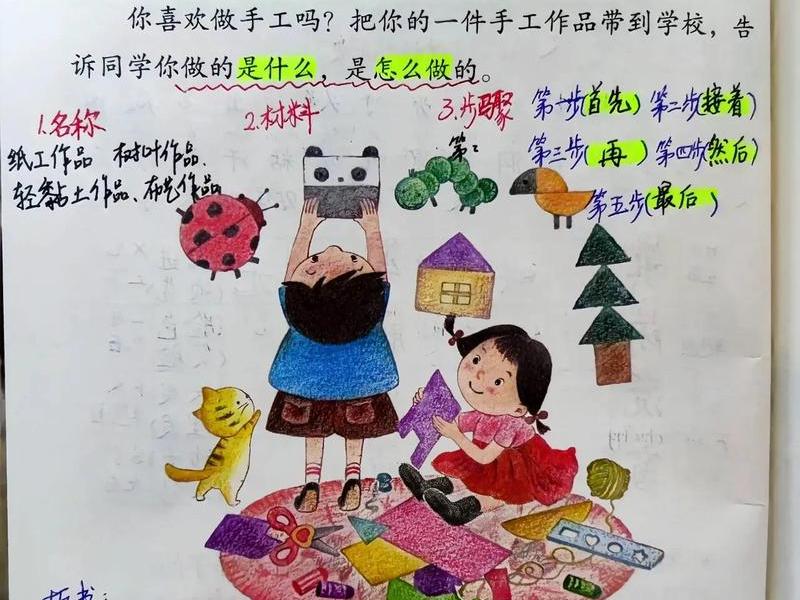 你喜欢做手工吗？把你的一件手工作品带到学校，告
诉同学你做的是什么，是怎么做的。
1.名称 2.材料 3.步骤 第一步(首先) 第二步(接着)
纸工作品 树叶作品、 第二 第三步(再) 第四步(然后)
轻黏土作品、布艺作品 第五步(最后)
板书: